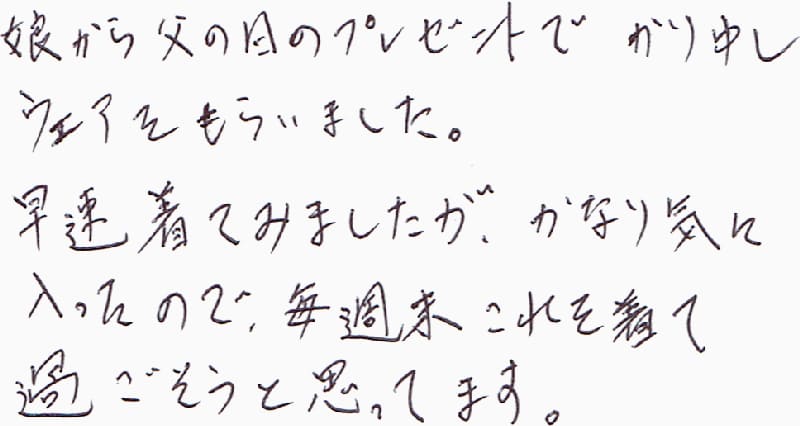 娘から父の日のプレゼントで かりゆし
ウェアをもらいました。
早速着てみましたが、かなり気に
入ったので、毎週末これを着て
過ごそうと思ってます。